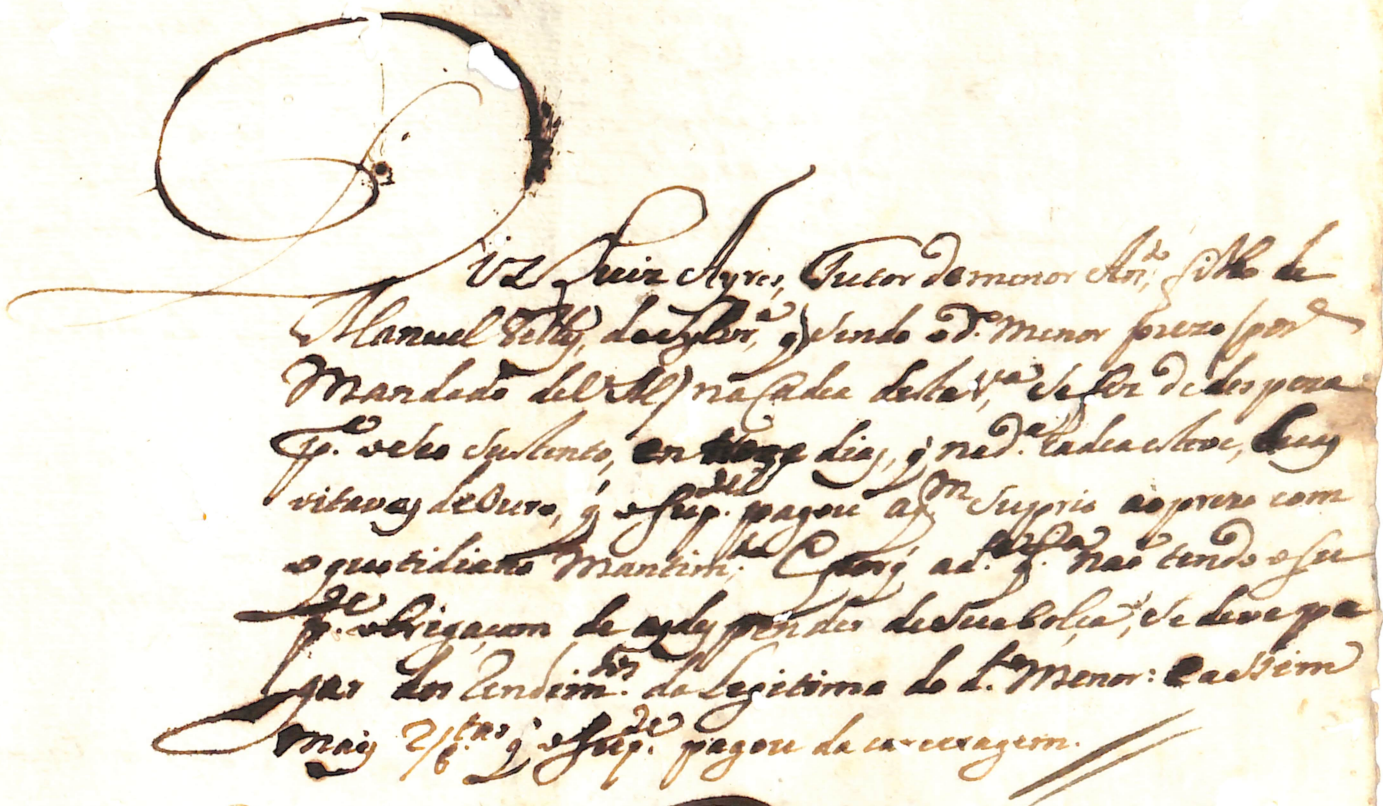 Diz Luiz Ayres, Tutor do menor Ant.º, filho de
Manuel Telles, da Sylvr.ª, q sendo o d.º Menor prezo por
Mandado de na Cadea desta V.ª, se fez de despeza
p.ª o seo sustento, en treze dias, q na d.ª Cadea esteve, duas
oitavas de Ouro, q o Sup.de pagou a q.m Suprio ao prezo com
o quotidiano Mantim.to E porq a d.ª não tendo o Su
p.de obrigaçaon de as despender de sua bolça, se deve pa
gar dos Rendim.tos da Legitima do d.º Menor: e assim
mais 2/8.tas q o Sup.de pagou da carceragem.